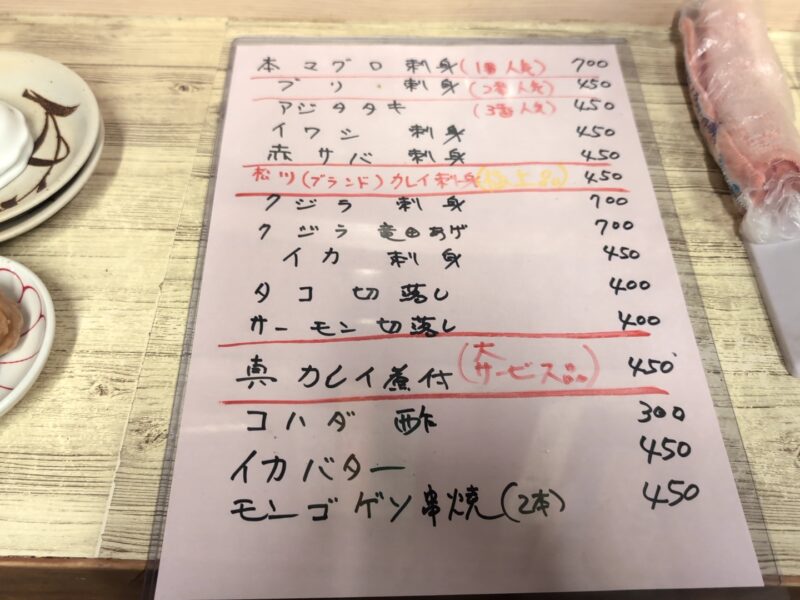 本マグロ 刺身(1番人気) 700
ブリ 刺身(2番人気) 450
アジタタキ (3番人気) 450
イワシ 刺身 450
赤サバ 刺身 450
松川(ブランド)カレイ刺身(極上品) 450
クジラ 刺身 700
クジラ 竜田あげ 700
イカ 刺身 450
タコ 切落し 400
サーモン切落し 400
真カレイ煮付(大サービス品) 450
コハダ 酢 300
イカバター 450
モンゴゲソ串焼(2本) 450